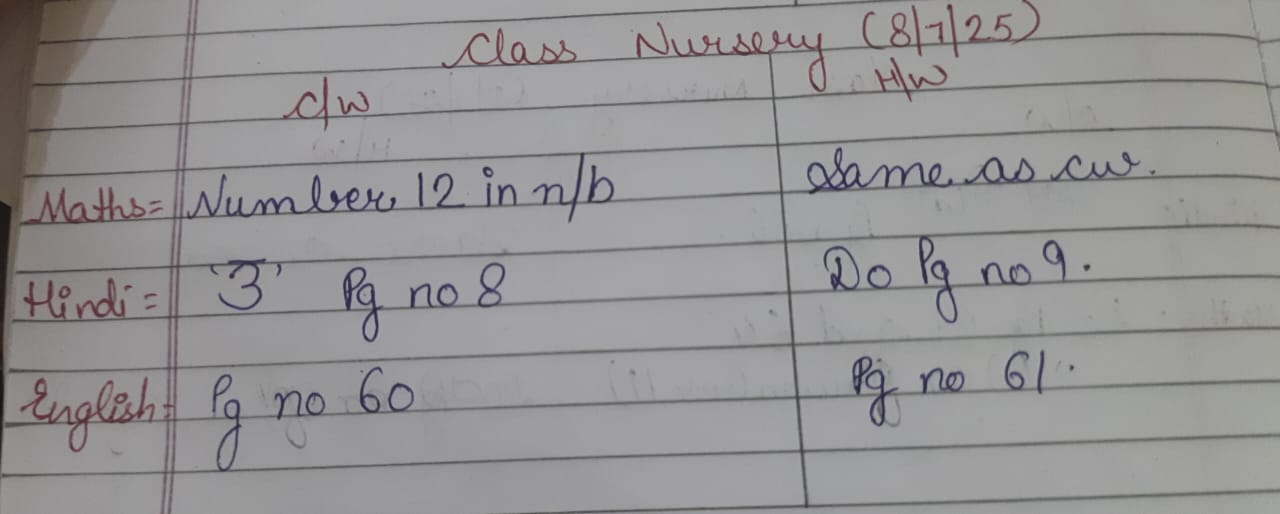 Class Nursery (8/7/25)
C/W H/W
Maths= Number 12 in n/b Same as cw.
Hindi= 'उ' Pg no 8 Do Pg no 9.
English= Pg no 60 Pg no 61.